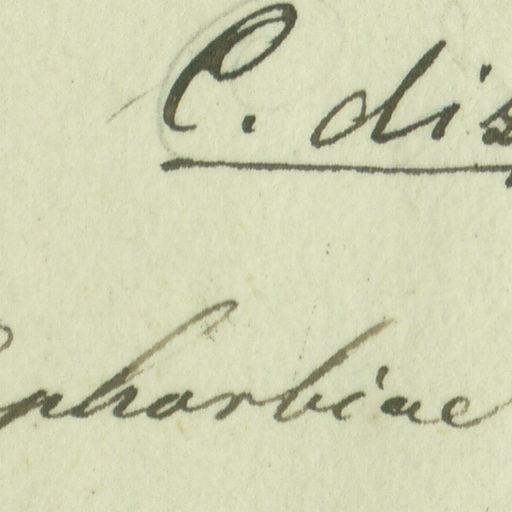 C. dis
Euphorbiae